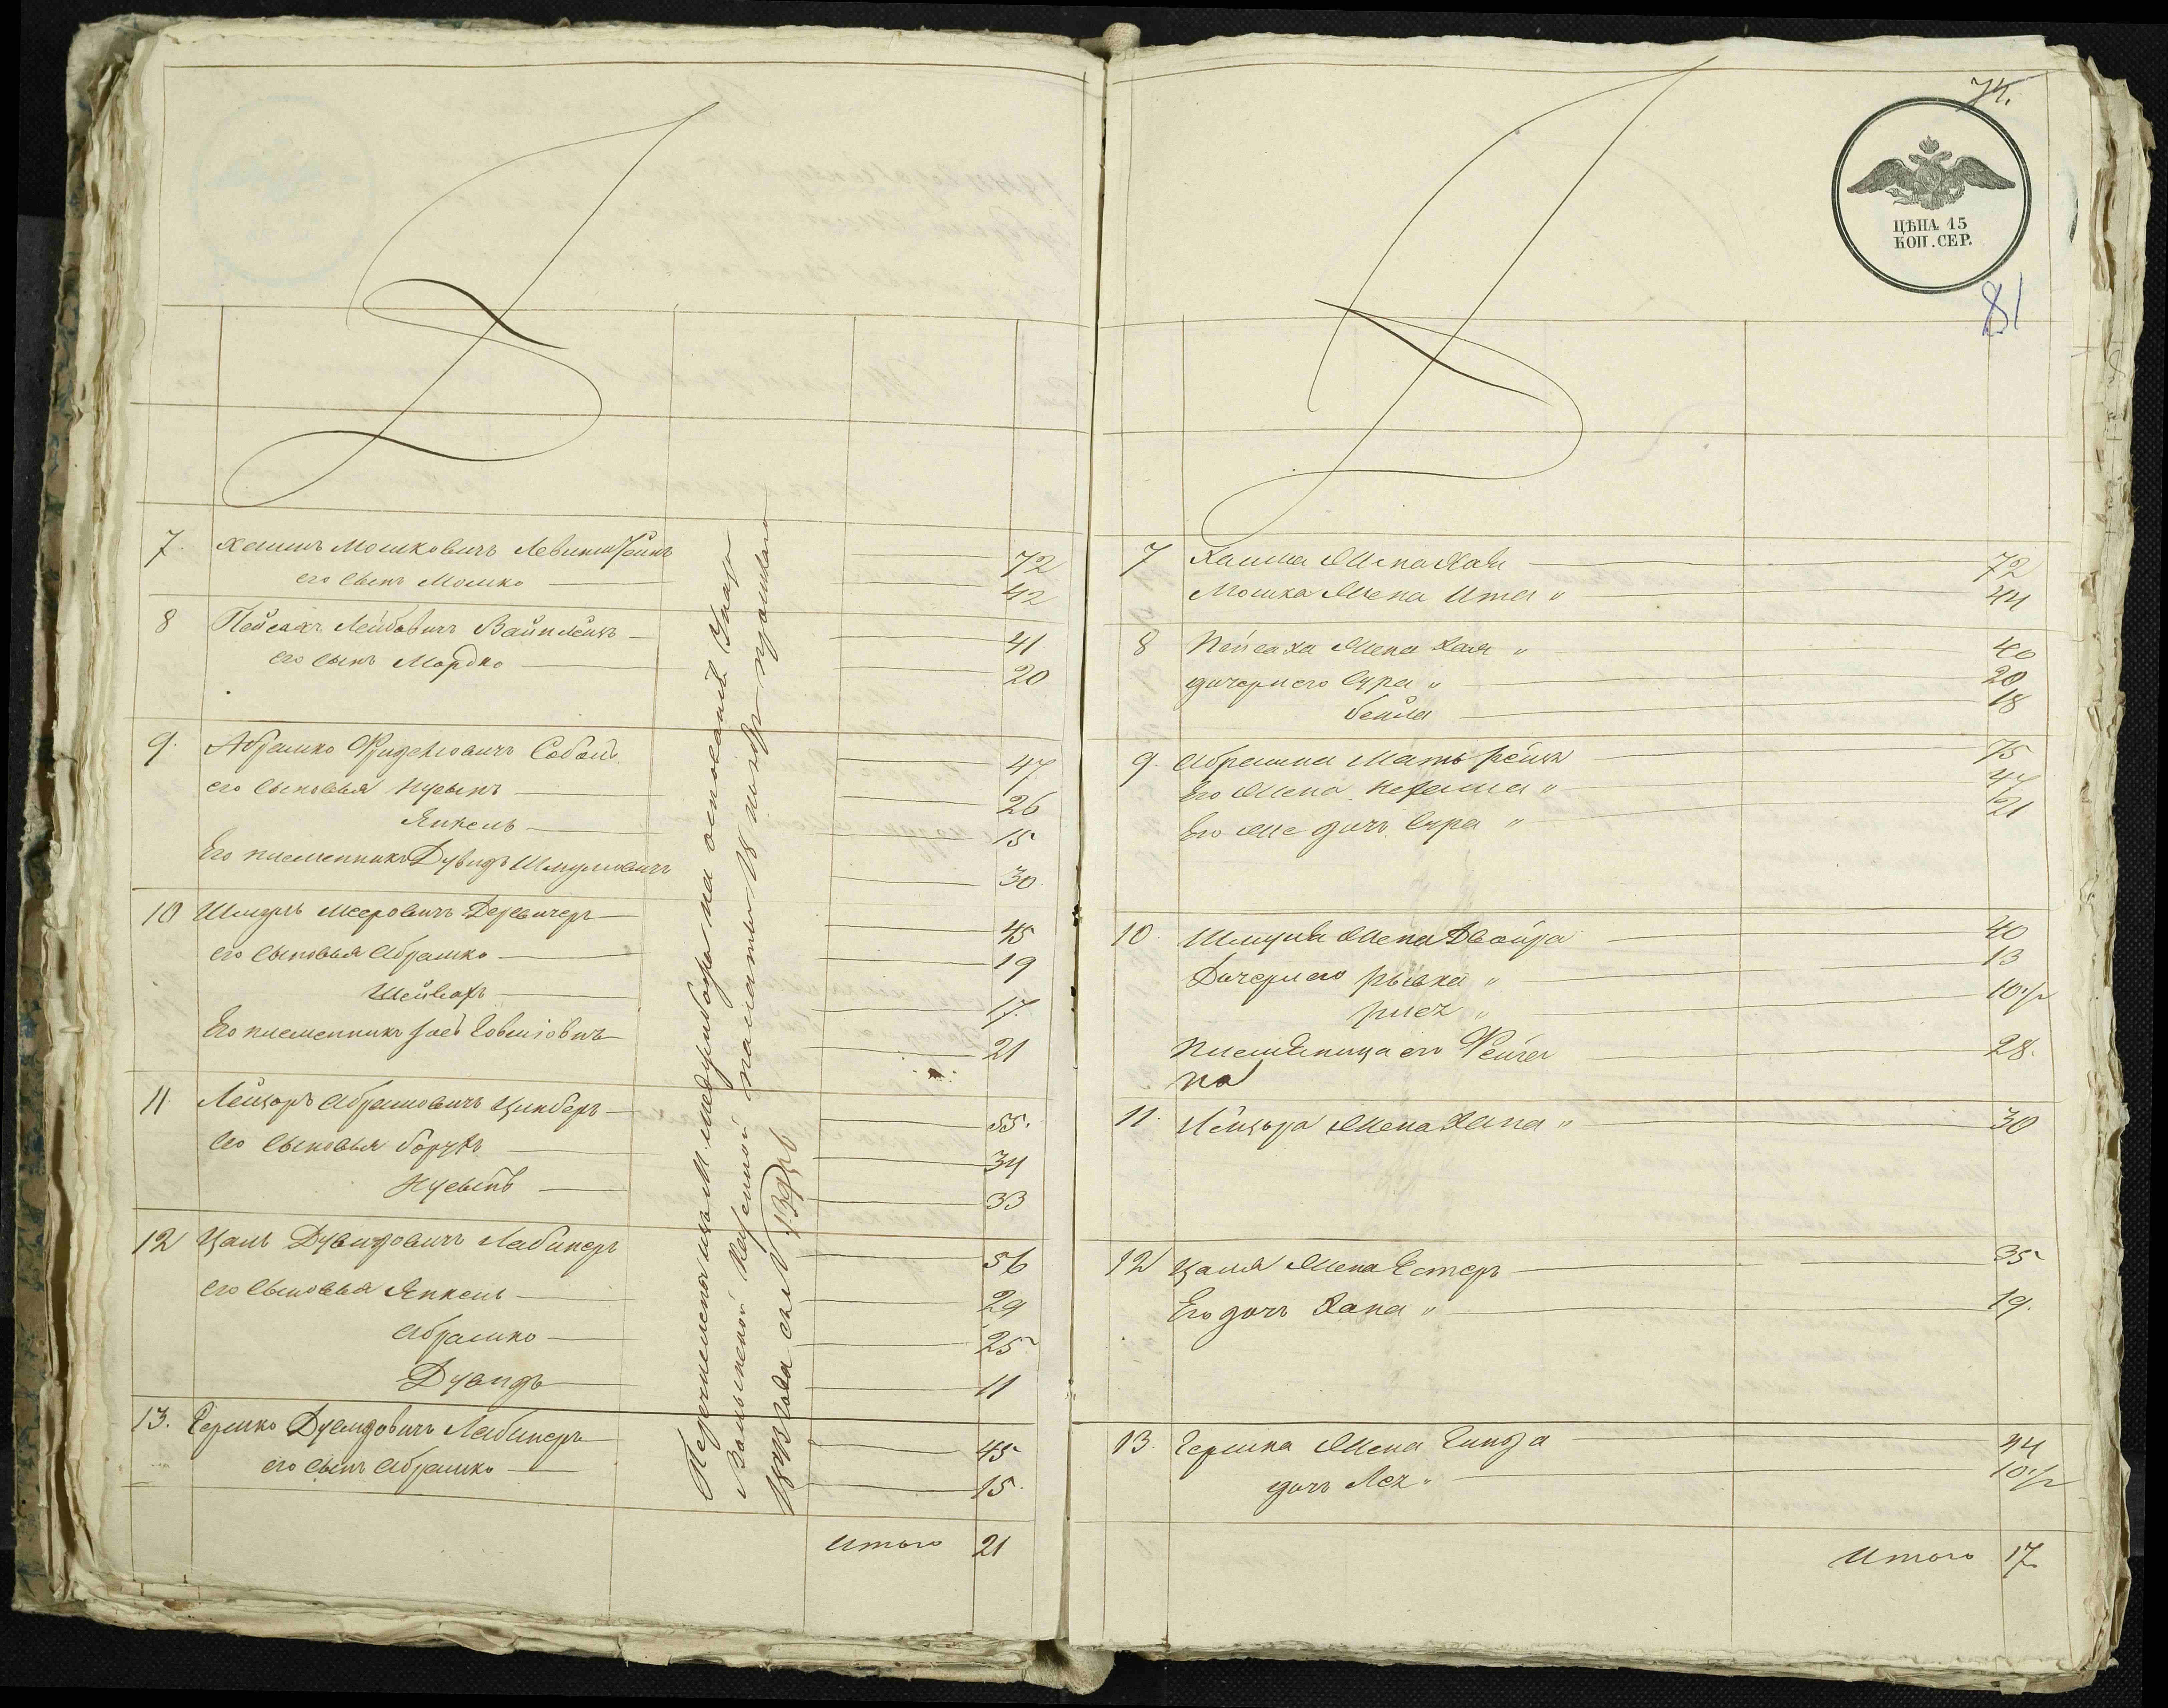 7. Хаимъ Мошковичъ Левинштейнъ 72
его сынъ Мошко 42
8 Пейсахъ Лейбовичъ Вайнлейхъ 41
его сынъ Мордко 20
9. Абрамко Фриделіовичъ 47
его сыновья Нусынъ 26
Янкель 15
Его племенникъ Дувидъ Шмулювичъ 30
10 Шмерль Меровичъ 45
его сыновья Абрамко 19
17
Его племенникъ 21
11. Лейзоръ Абрамовичъ Цинберъ 55
Его сыновья Борухъ 34
Нусынъ 33
12 Цаль Дувидовичъ Лабинеръ 56
его сыновья Янкель 29
Абрамко 25
Дувидъ 11
13. Гершко Дувидовичъ Лабинеръ 45
его сынъ Абрамко 15
Итого 21
Перечислены въ М. на основаніи указа
Волынской Казенной палаты
года за № 13956
74.
ЦѢНА 15
КОП. СЕР.
81
7 Хаима жена Хая 72
Мошка жена Ита 44
8 Пейсаха жена Хая 40
дочери его Сура 20
Бейла 18
9. Абрамка мать Рейзя 75
Его жена Нехама 47
Его же дочь Сура 21
10. жена Двойра 40
Дочери его Рывка 13
10 1/2
Племенница его Фейга 28.
11. Лейзора жена Хана 30
12 Цаля жена Естеръ 35
Его дочь Хана 19.
13. Гершка жена 44
дочь Лея 10 1/2
Итого 17